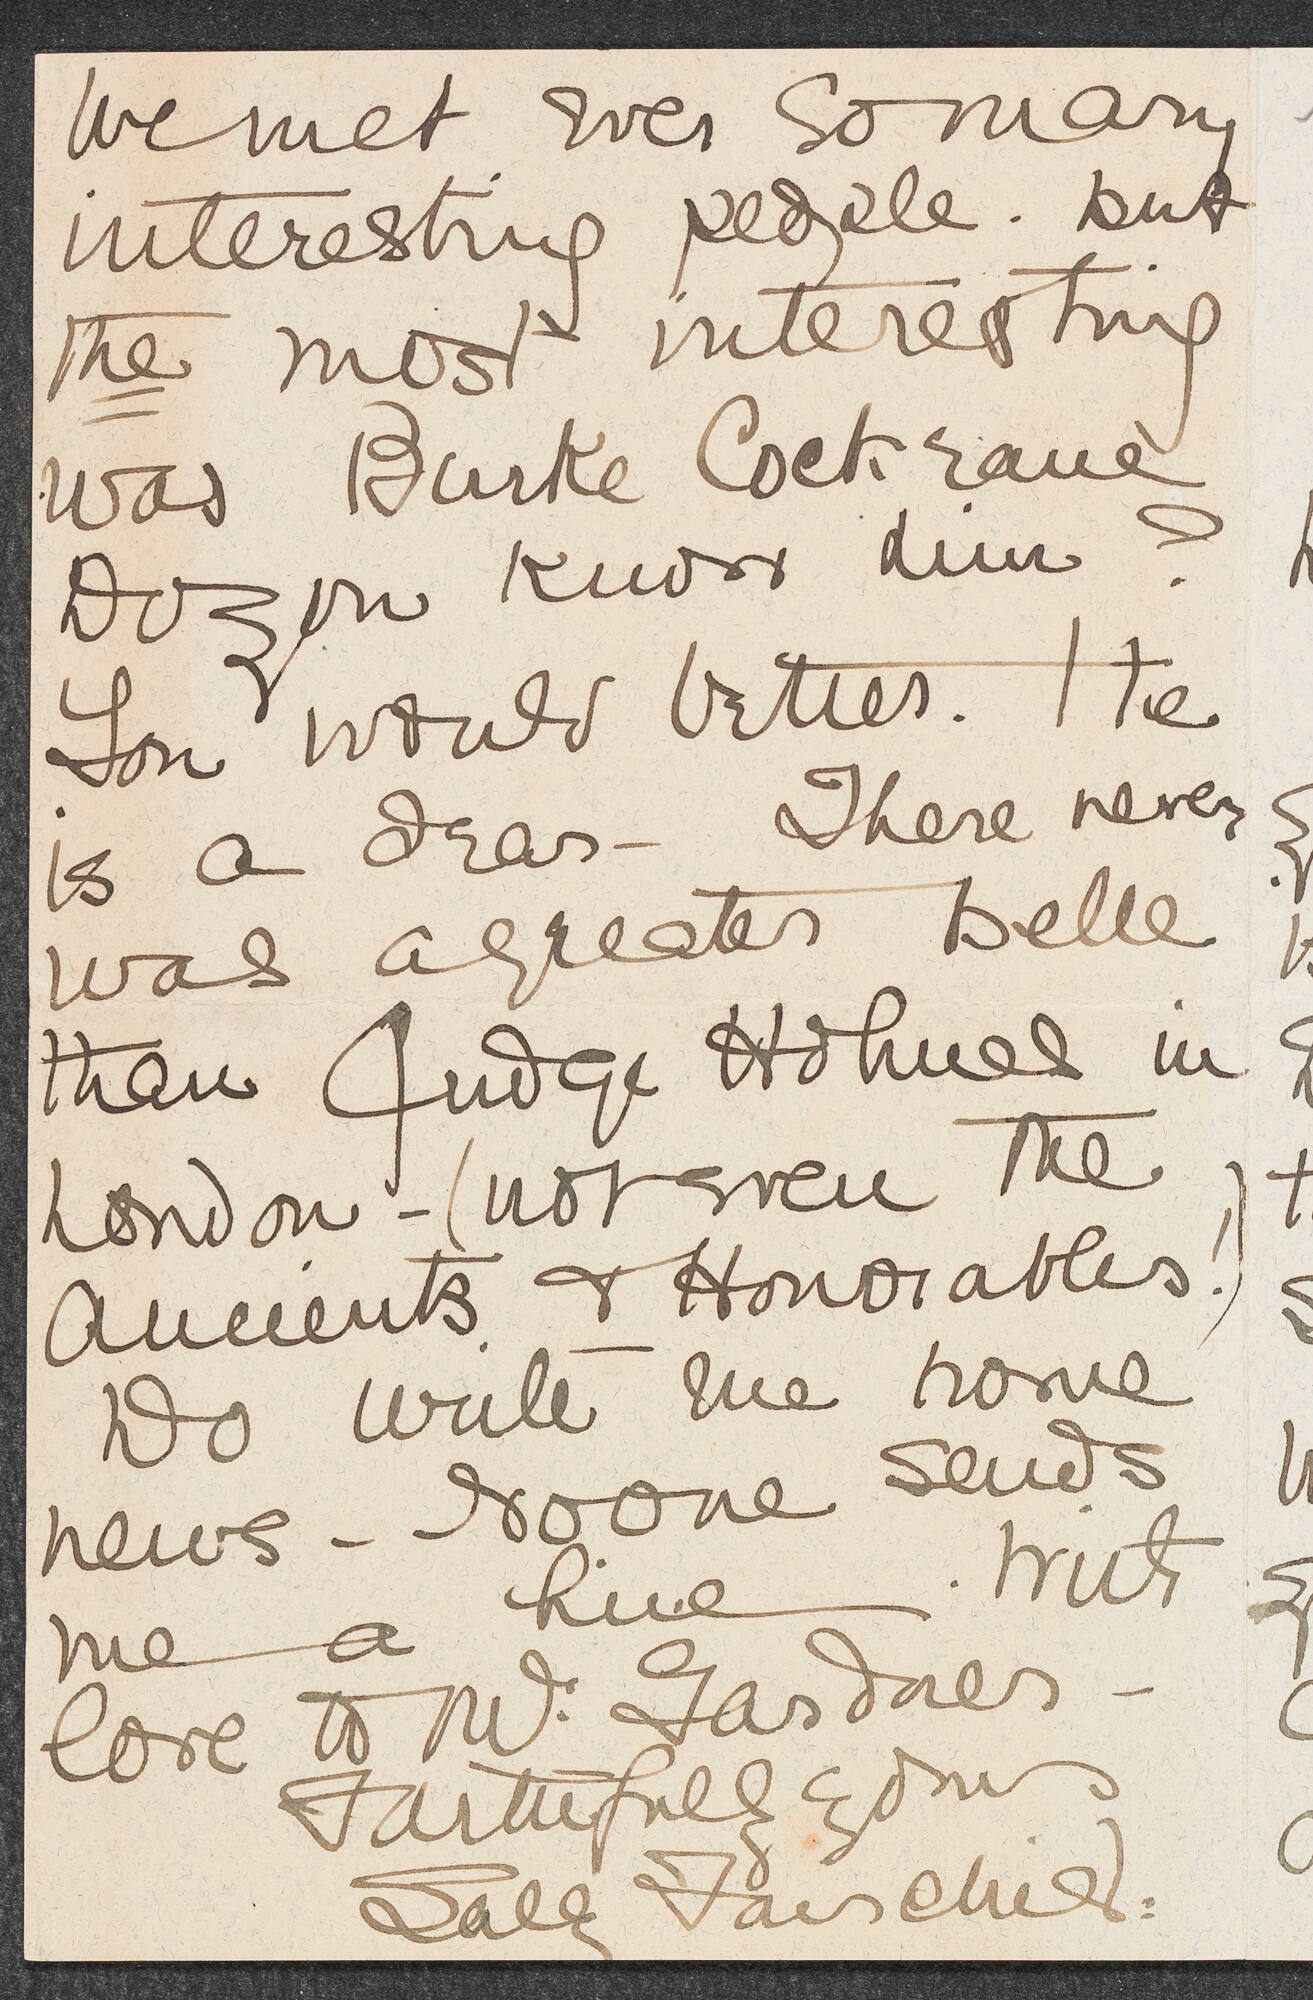 We met ever so many
interesting people. but
the most interesting
was Burke Cockrane
Do you know him?
You would better. He
is a dear- There never
was a greater belle
than Judge Holmes in
London - (not even the
Ancients & Honorables!)
Do write me home
news - No one sends
me a line. With
love to Mr. Gardner -
Faithfully yours
Sally Fairchild.